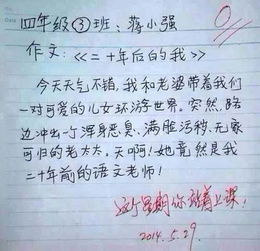 四年级③班：蒋小强
作文：《二十年后的我》
今天天气不错，我和老婆带着我们
一对可爱的儿女环游世界。突然，路
边冲出一个浑身恶臭、满脸污秽、无家
可归的老太太，天啊！她竟然是我
二十年前的语文老师！
这个星期你站着上课！
2014.5.29.